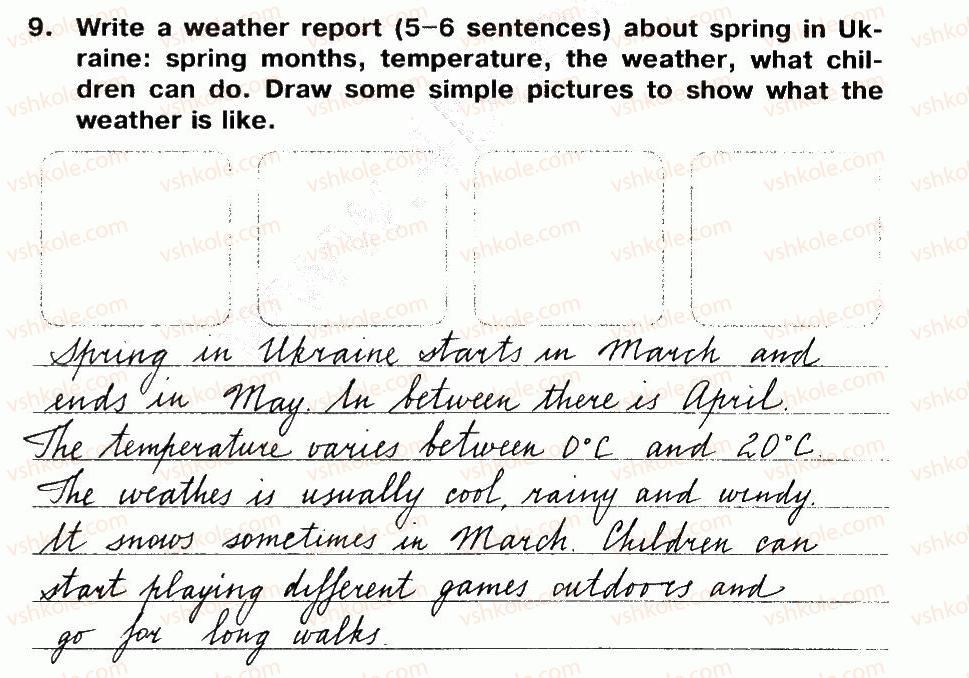 9. Write a weather report (5–6 sentences) about spring in Uk-
raine: spring months, temperature, the weather, what chil-
dren can do. Draw some simple pictures to show what the
weather is like.
Spring in Ukraine starts in March and
ends in May. In between there is April.
The temperature varies between 0°C and 20°C.
The weathes is usually cool, rainy and windy.
It snows sometimes in March. Children can
start playing different games outdoors and
go for long walks.
vshkole.com